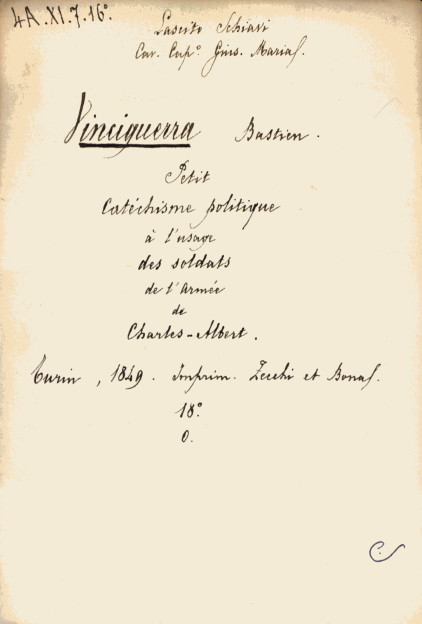 4A.XI.7.16°.
Lascito Schiavi
Cav. Cap°. Gius. Maria.
Vinciguerra Bastien.
Petit
Catéchisme politique
à l'usage
des soldats
de l'Armée
de
Charles-Albert.
Turin, 1849. Imprim. Zecchi et Bona.
18°
0.